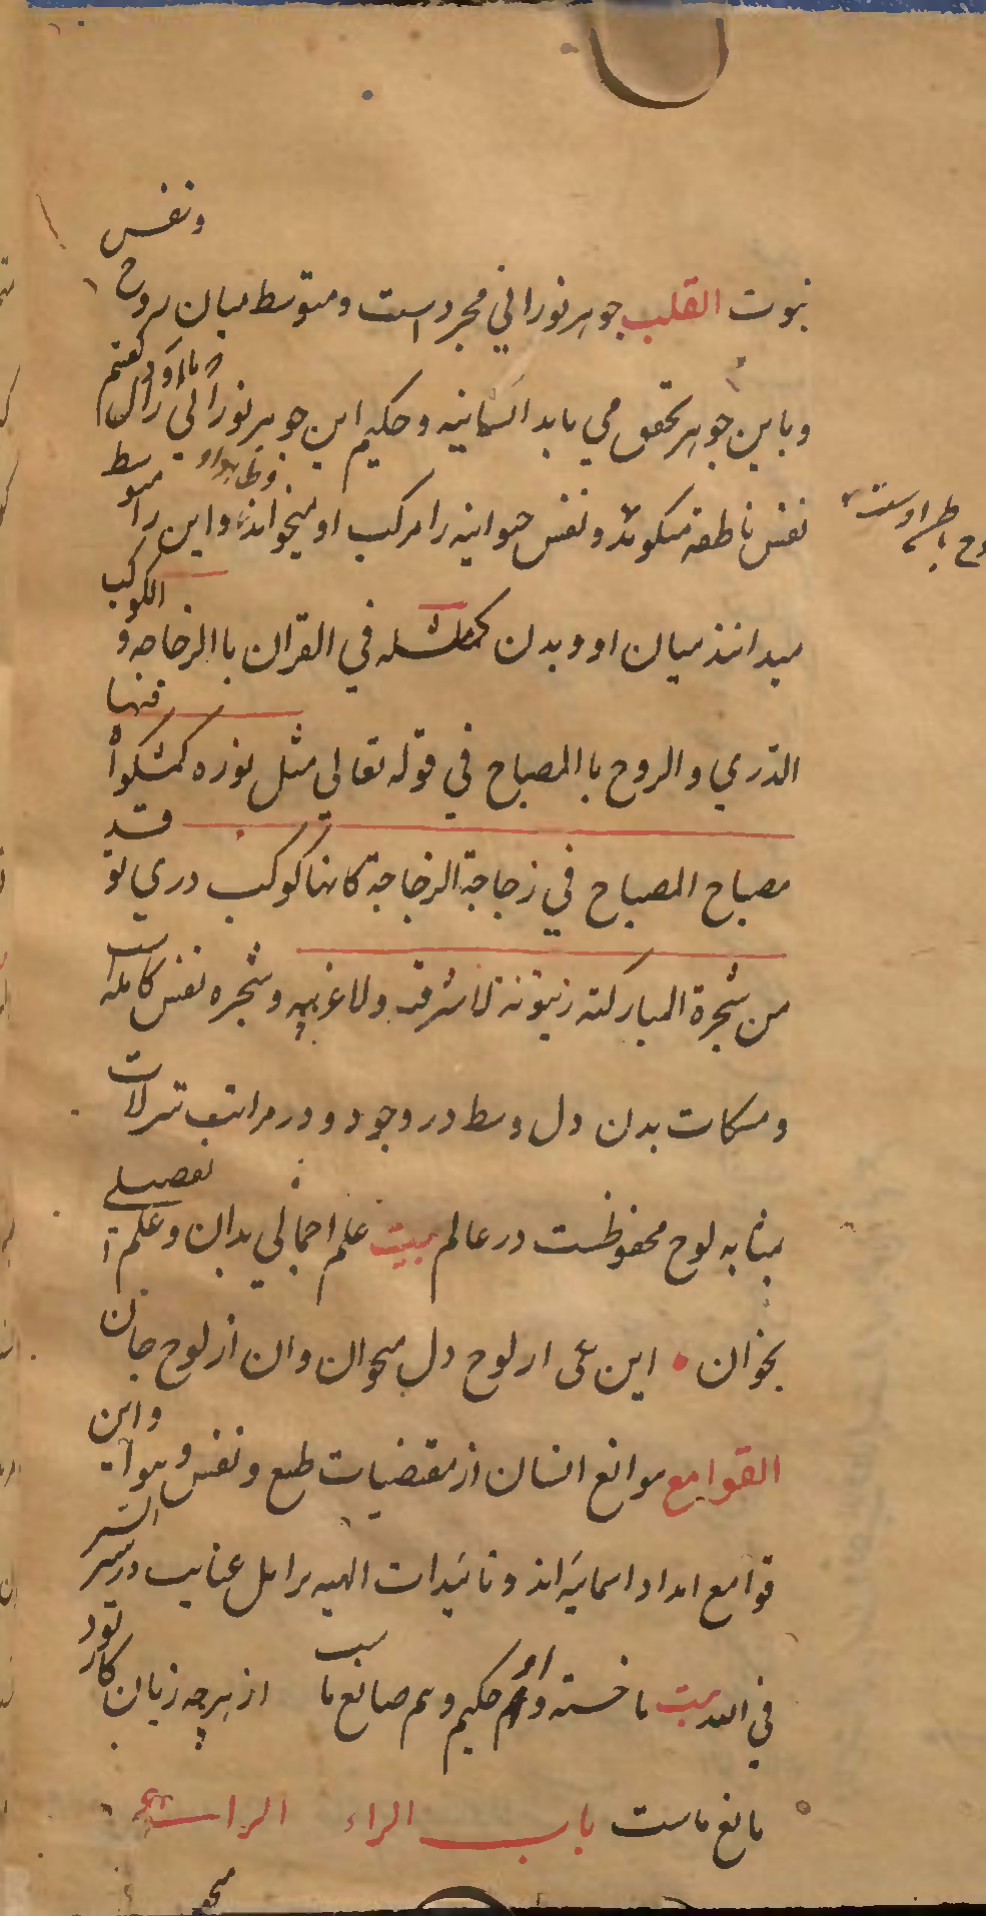 نبوت القلب جوهر نورانی مجرد است و متوسط میان روح و نفس
و باین جوهر تحقق می یابد انسانیه و حکیم این جوهر نورانی را
نفس ناطقه میکویند و نفس حیوانیه را مرکب او میخوانند و این را متوسط
روح باطن اوست
میدانند میان او و بدن کمثله فی القران باالزجاجه و الکوکب
الدّری و الروح باالمصباح فی قوله تعالی مثل نوره کمشکواة فیها
مصباح المصباح فی زجاجة الزجاجة کانها کوکب دری توقد
من شجرة المبارکته زیتونة لا شرقیه ولا غربیه و شجره نفس کامله است
و مسکات بدن دل وسط در وجود و در مراتب تنزلات
بمثابه لوح محفوظست در عالم بیت علم اجمالی بدان و علم تفصیلی
بخوان این یکی از لوح دل میخوان وان از لوح جان
القوامع موانع انسان از مقتضیات طبع و نفس و هوا و این
قوامع امداد اسمائیه اند و تائیدات الهیه بر اهل عنایت در سیر السیر
فی الله بیت ما خسته و او حکیم و هم صانع ما از هرچه زیان کار بود
مانع ماست باب الراء الراست